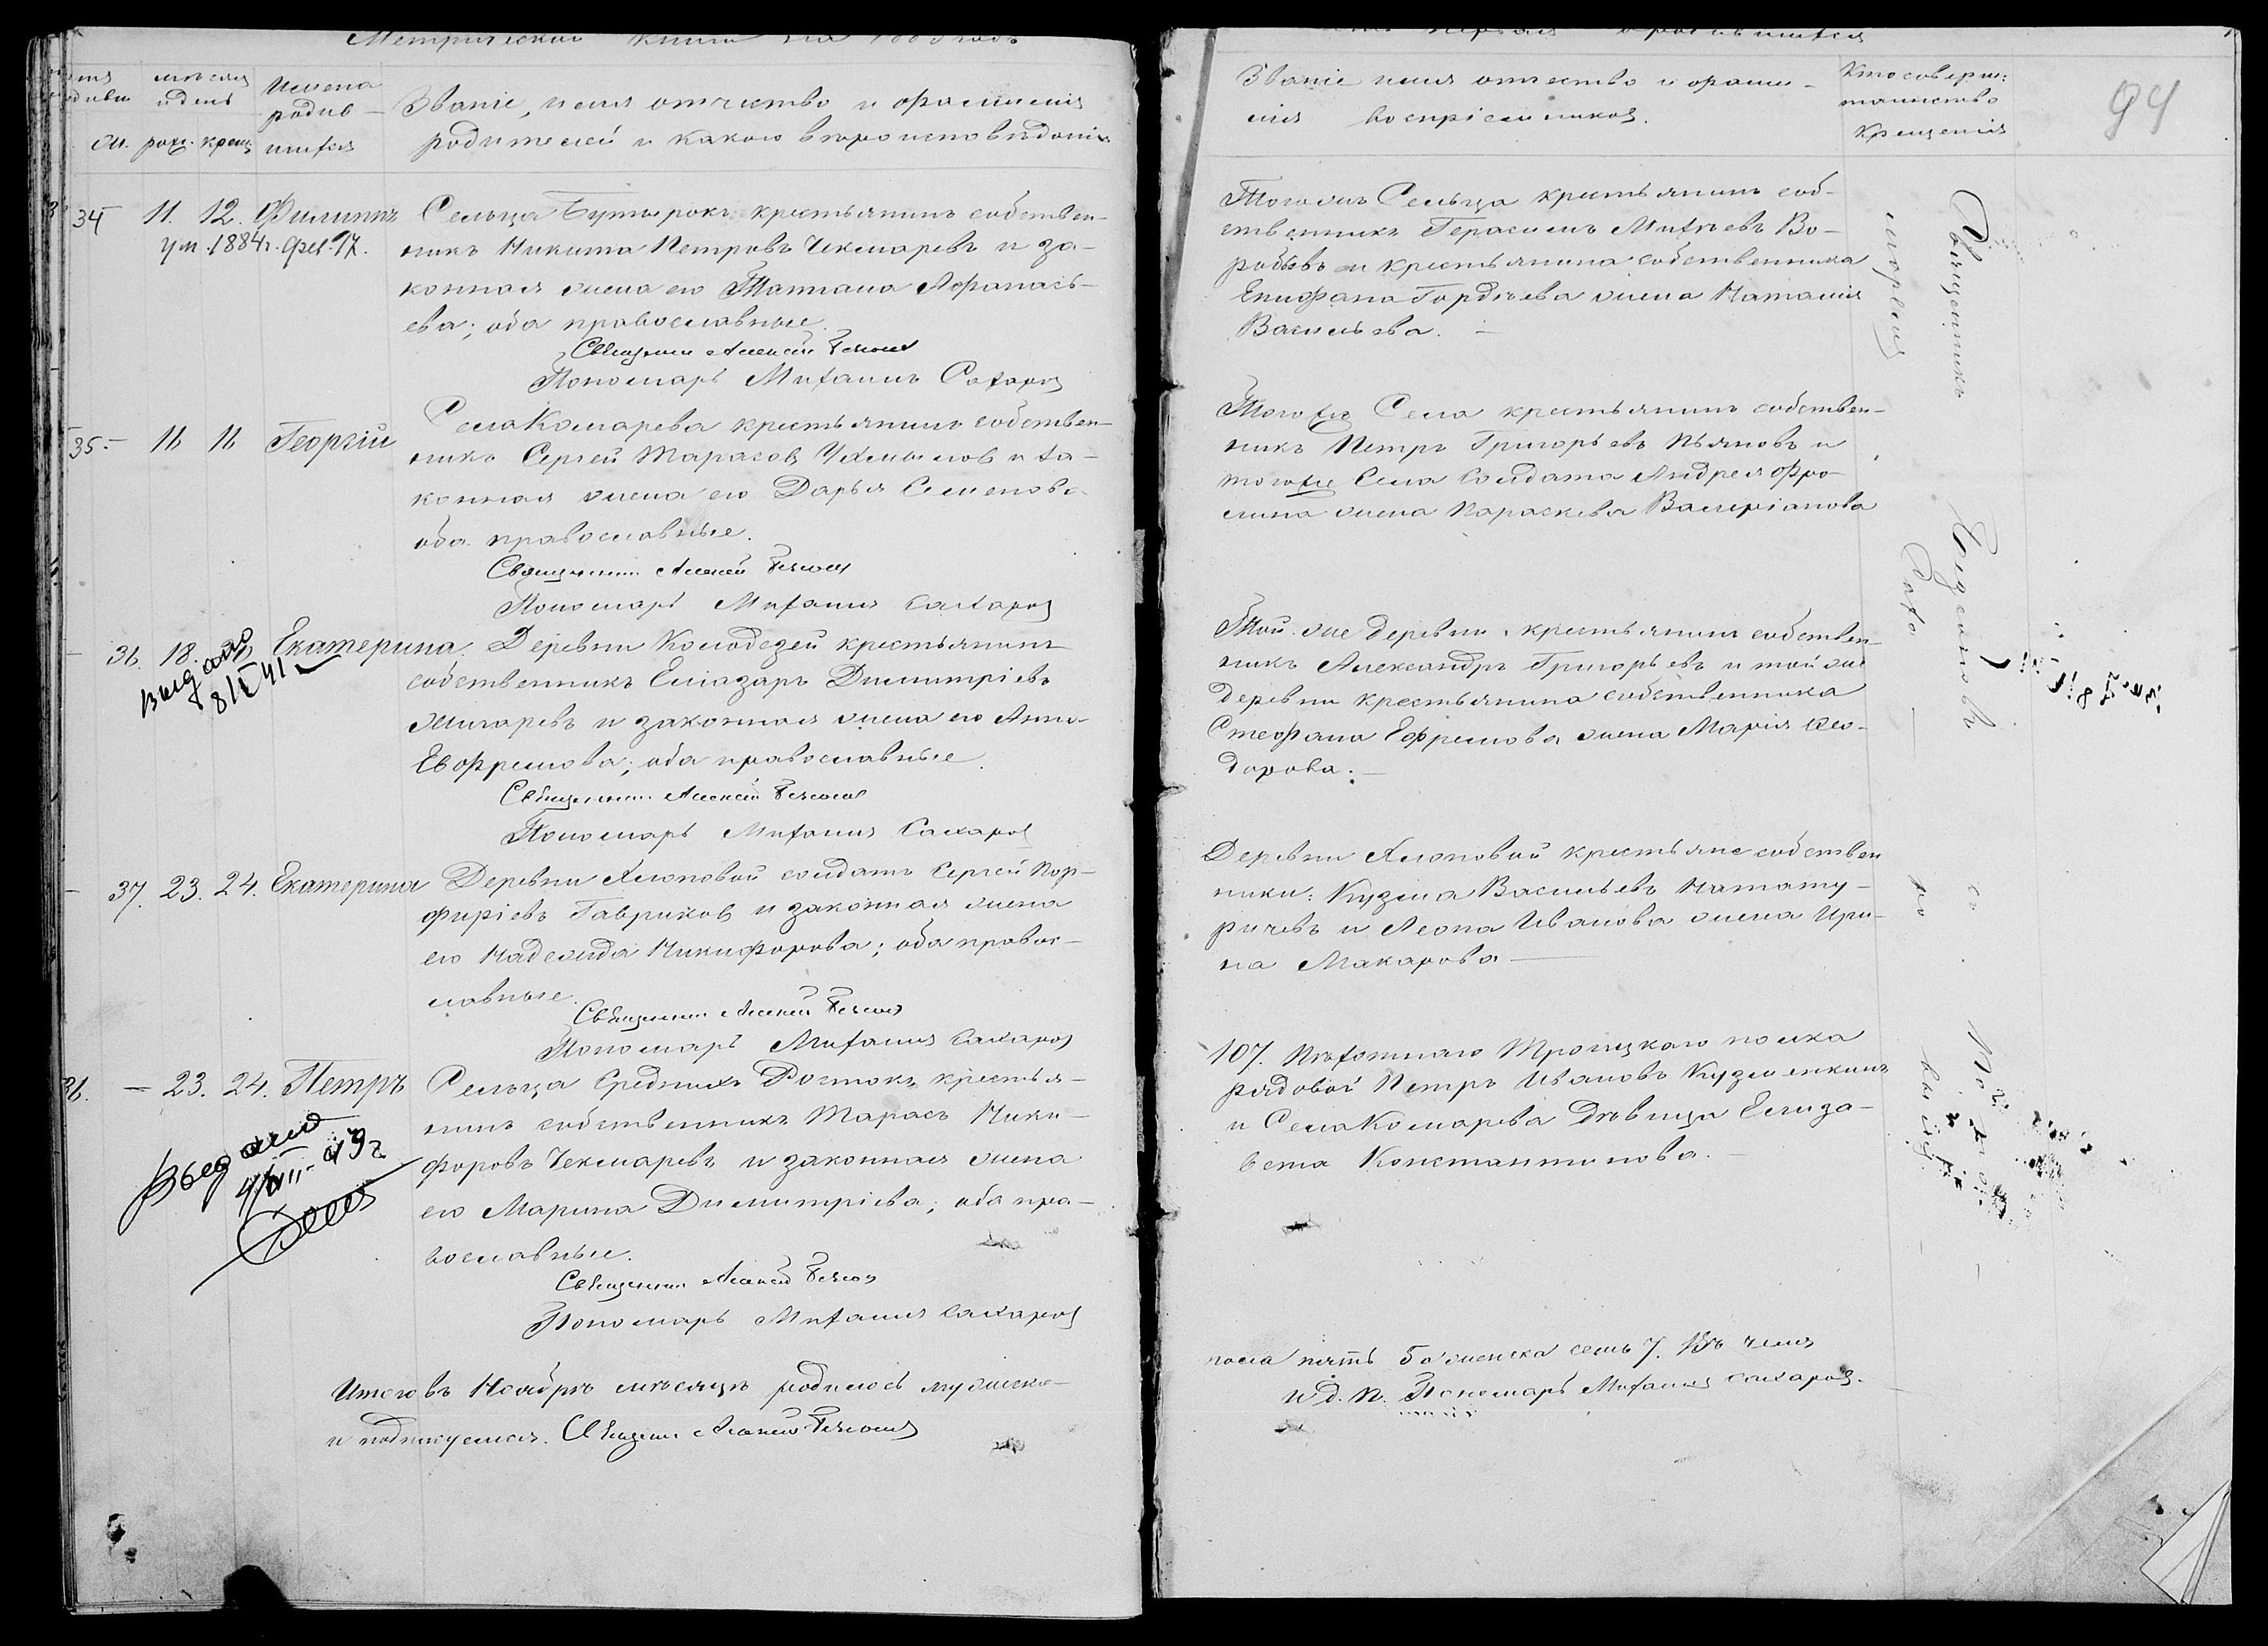 Метрической книги на 1883 годъ
мѣсяц
и день
Имена
родив-
шихся
Званіе, имя отчество и фамилія
родителей и какого вѣроисповѣданія
рожд. крещ.
34 11. 12. Филиппъ Сельца Бутырокъ крестьянинъ собствен-
ум. 1884 г. фев. 17. никъ Никита Петровъ Чекмаревъ и за-
конная жена его Татиана Афанась-
ева; оба православные.
Священникъ Алексей
Пономарь Михаилъ Сахаровъ
35. 16 16 Георгій Села Комарева крестьянинъ собствен-
никъ Сергей Тарасовъ и за-
конная жена его Дарья Семенова
оба православные.
Священникъ Алексей
Пономарь Михаилъ Сахаровъ
36. 18. Екатерина. Деревни Колодезей крестьянинъ
выдано
8/X 41
собственникъ Елиазаръ Димитріевъ
Жигаревъ и законная жена его Анна
Евфремова; оба православные.
Священникъ Алексей
Пономарь Михаилъ Сахаровъ
37. 23. 24. Екатерина Деревни Хлоповой солдатъ Сергей Пор-
фиріевъ Гавриковъ и законная жена
его Надежда Никифорова; оба правос-
лавные.
Священникъ Алексей
Пономарь Михаилъ Сахаровъ
38. — 23. 24. Петръ Сельца Среднихъ Ростокъ крестья-
нинъ собственникъ Тарасъ Ники-
форовъ Чекмаревъ и законная жена
его Марина Димитріева; оба пра-
вославные.
Выдано
Священникъ Алексей
Пономарь Михаилъ Сахаровъ
Итого въ Ноябрѣ мѣсяцѣ родилось мужска-
и подписуемся. Священ. Алексей
Званіе имя отчество и фами-
лія воспріемниковъ.
Кто соверш:
таинство
крещенія
94
Тогожъ Сельца крестьянинъ соб-
ственникъ Герасимъ Михѣевъ Во-
робьевъ и крестьянина собственника
Епифана Гордѣева жена Наталия
Васильева. —
Тогоже Села крестьянинъ собствен-
никъ Петръ Григорьевъ Пьяновъ и
тогоже Села солдата Андрея Фро-
лина жена Параскева Валеріанова
Той-же деревни крестьянинъ собствен-
никъ Александръ Григорьевъ и той же
деревни крестьянина собственника
Стефана Ефремова жена Марія Ѳео-
дорова. —
Деревни Хлоповой крестьяне собствен
ники: Кузма Васильевъ
и Леона Иванова жена Ири-
на Макарова —
107. Пѣхотнаго Троицкаго полка
рядовой Петръ Ивановъ Кузменкинъ
и Села Комарева Дѣвица Елиза-
вета Константинова. —
пола пять 5 а женска семь 7. Въ чемъ
и. д. п. Пономарь Михаилъ Сахаровъ.
Священникъ